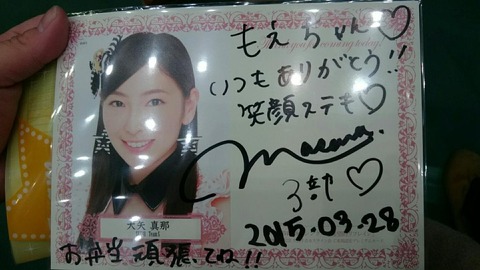 もえちゃん♡
いつもありがとう!!
笑顔ステキ♡
Masana.
3部♡
2015.03.28
大矢 真那
お弁当頑張ってね!!